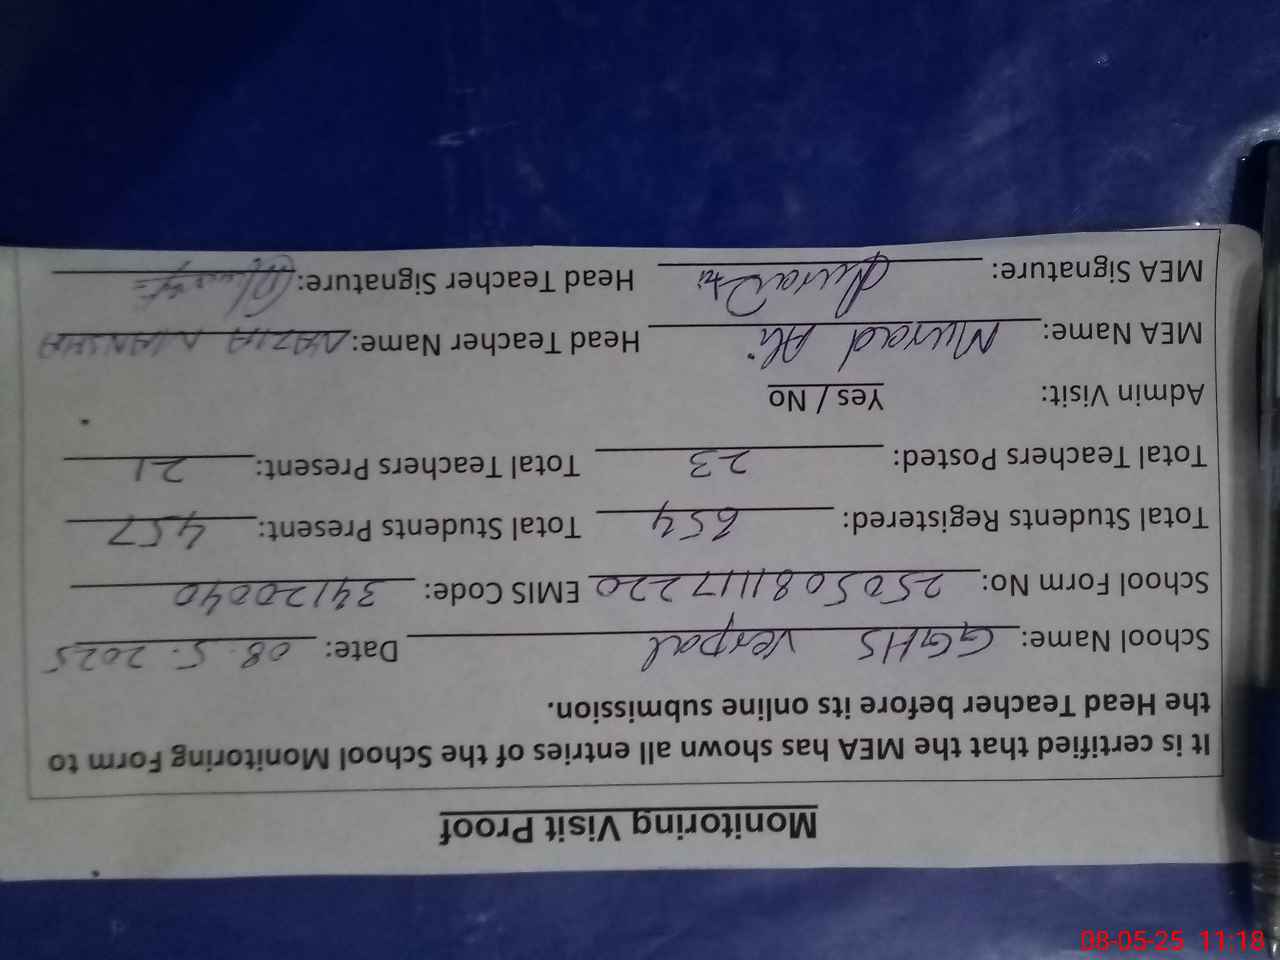 Monitoring Visit Proof
It is certified that the MEA has shown all entries of the School Monitoring Form to
the Head Teacher before its online submission.
School Name: GGHS Verpal Date: 08.5.2025
School Form No: 2505081117220 EMIS Code: 34120040
Total Students Registered: 654 Total Students Present: 457
Total Teachers Posted: 23 Total Teachers Present: 21
Admin Visit: Yes / No
MEA Name: Murad Ali Head Teacher Name: NAZIA MANSHA
MEA Signature: Murad Ali Head Teacher Signature:
08-05-25 11:18